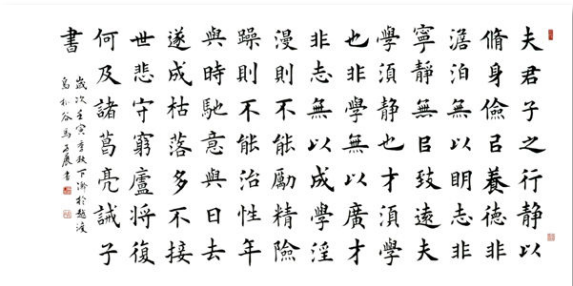 夫君子之行静以
脩身儉㠯養徳非
澹泊無以明志非
寧靜無㠯致遠夫
學須静也才須學
也非學無以廣才
非志無以成學淫
漫則不能勵精險
躁則不能治性年
與時馳意與日去
遂成枯落多不接
世悲守窮廬將復
何及諸葛亮誡子
書
歲次壬寅季秋下澣於